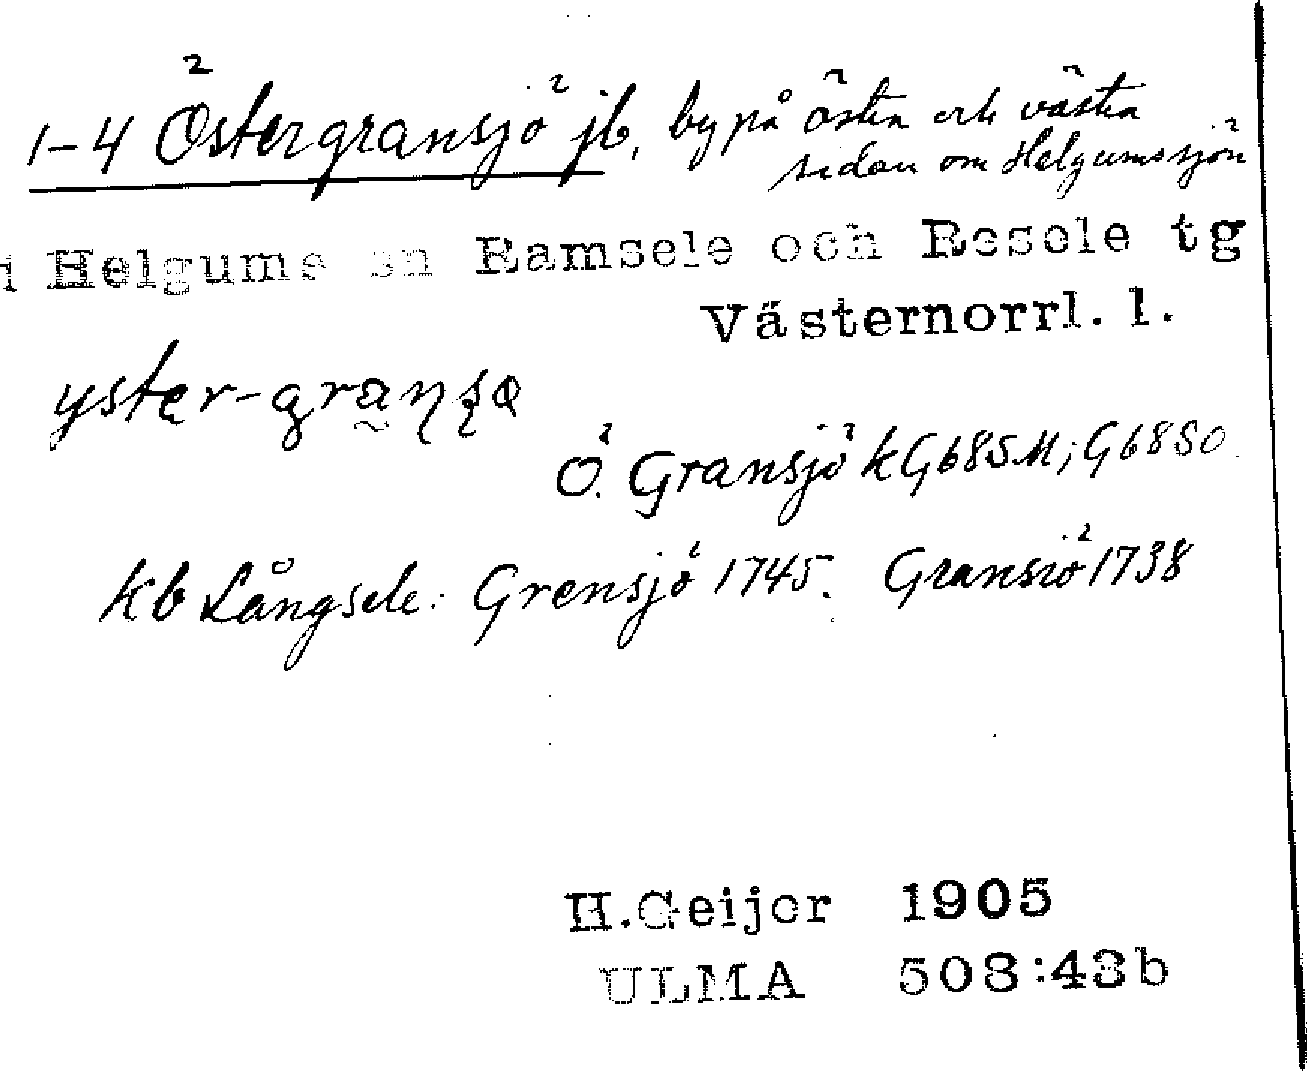 1-4 Östergransjö jb, by på östra och västra
sidan om Helgumssjön
i Helgums sn Ramsele och Resele tg
Västernorrl. l.
yster-gransø
Ö. Gransjö k G685M; G68SO
kb Långsele: Grensjö 1745. Gransiö 1738
H.Geijer 1905
ULMA 508:43b